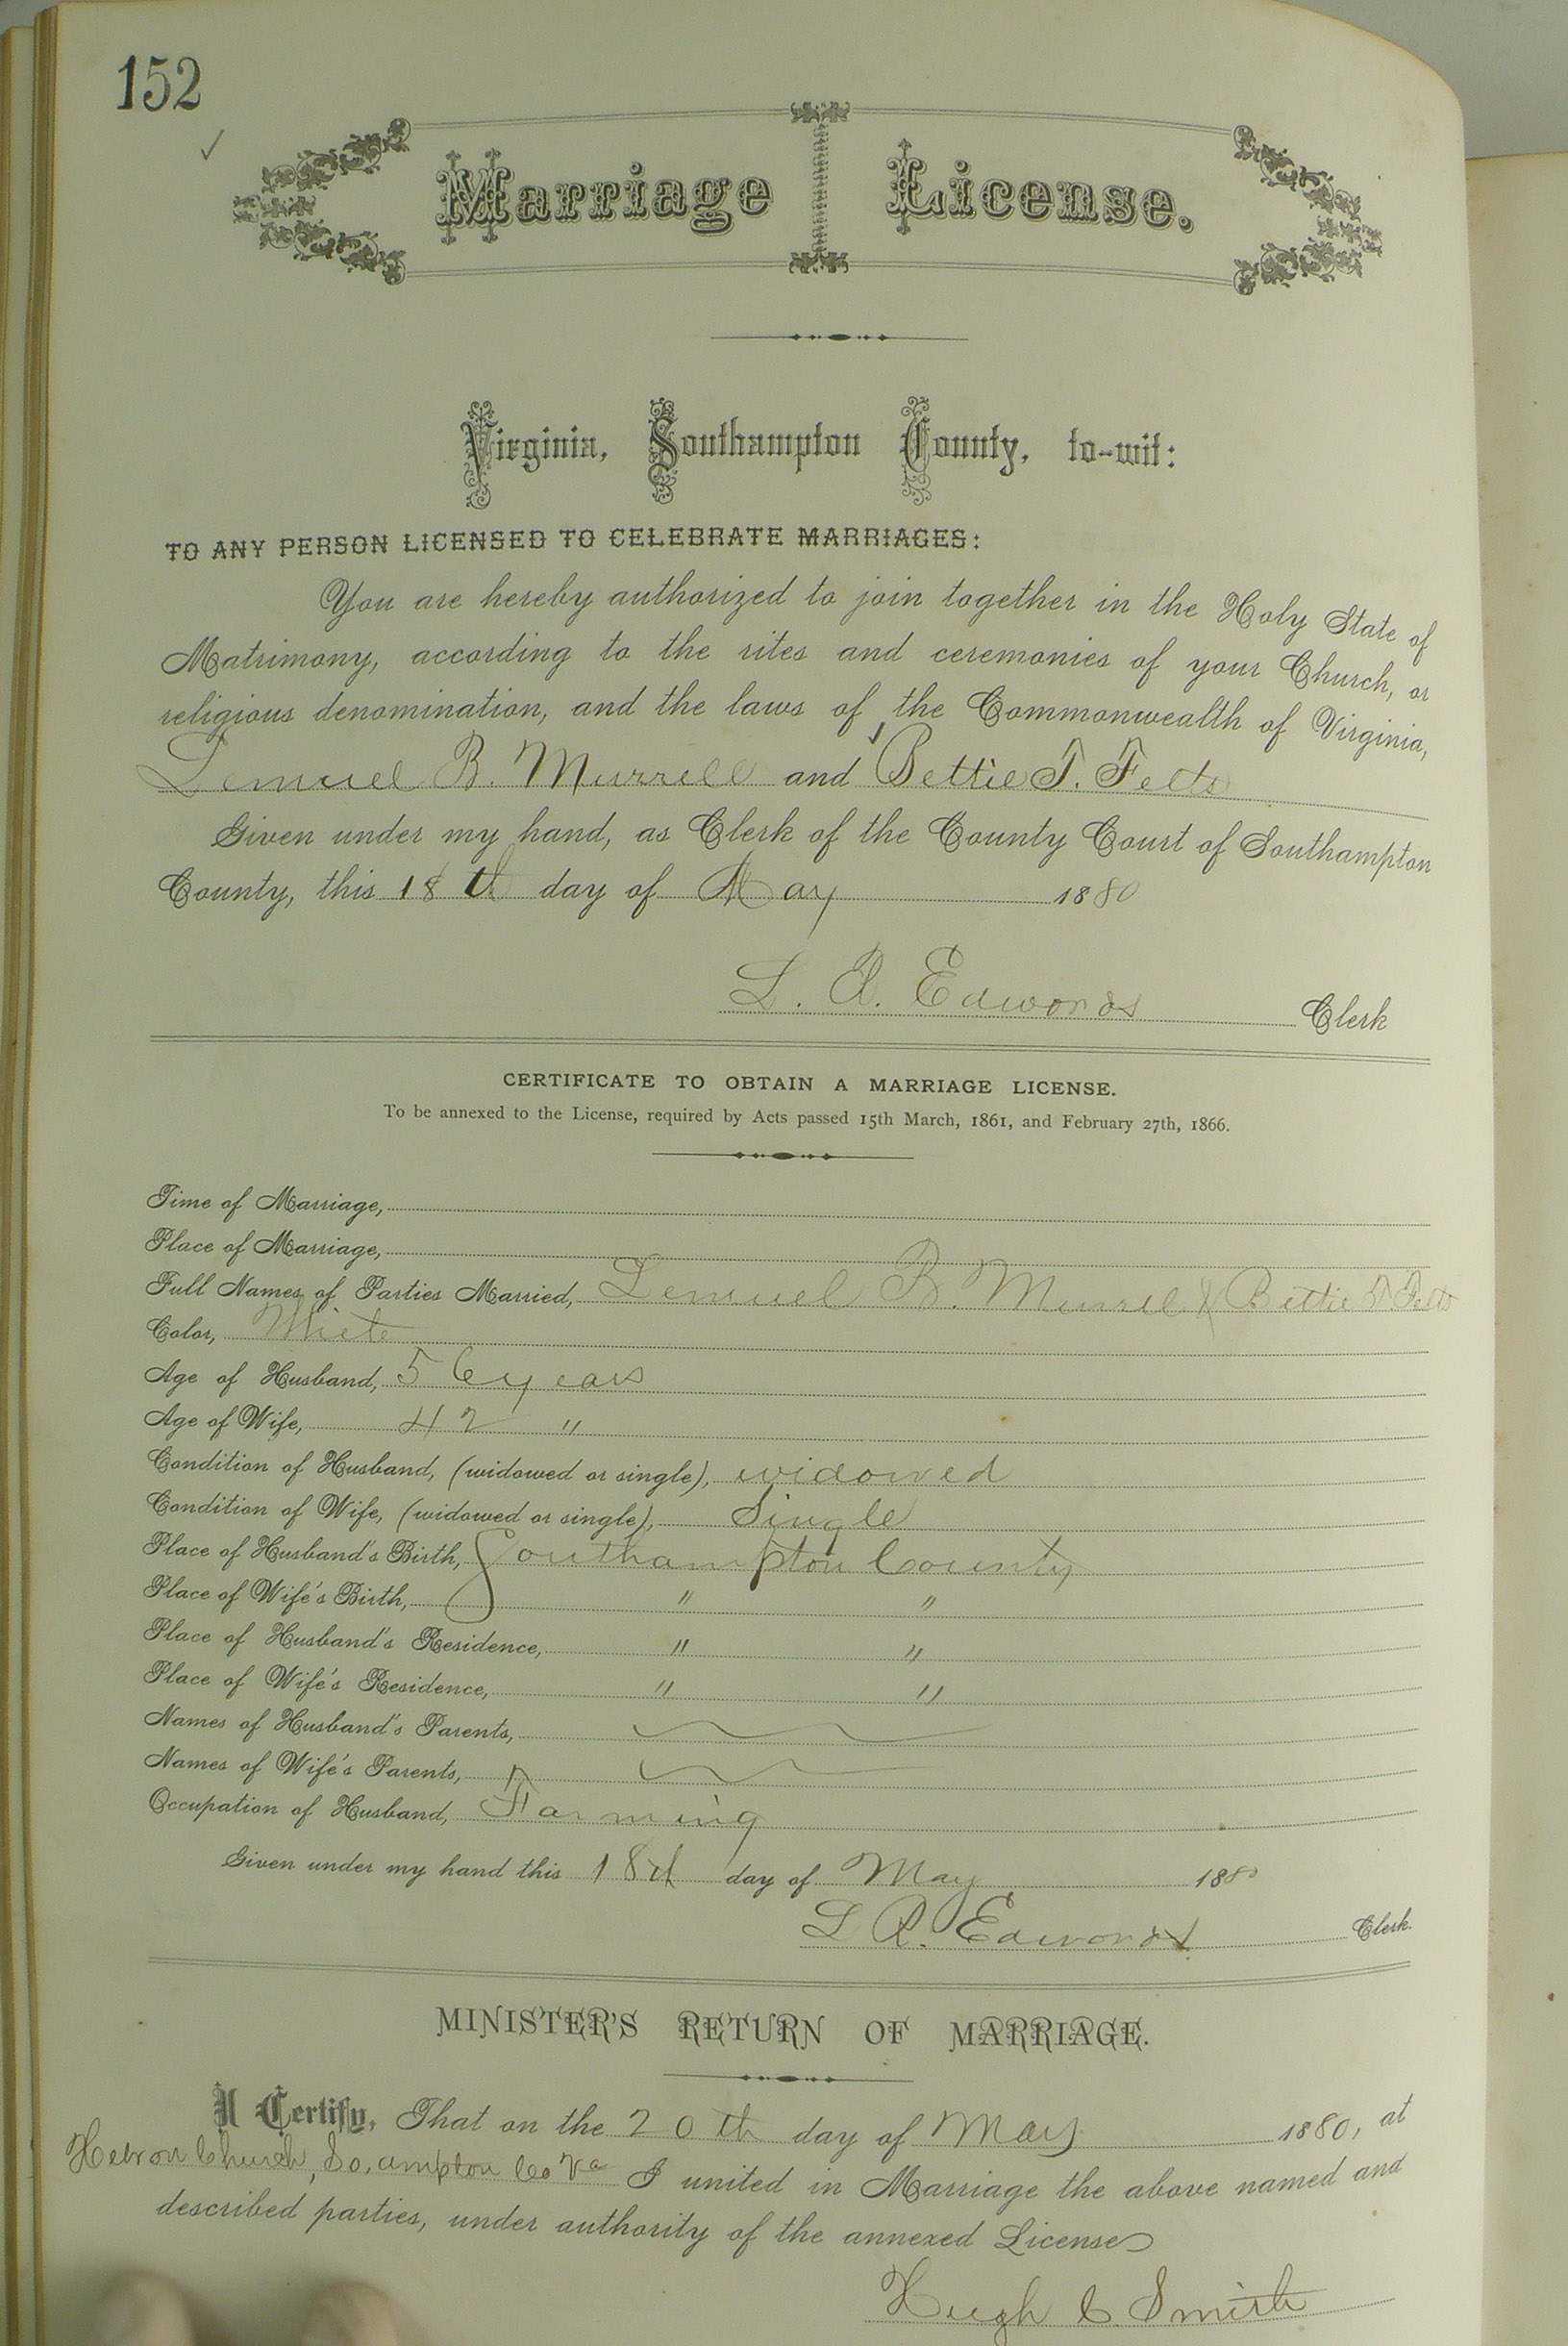 152
Marriage License.
Virginia, Southampton County, to-wit:
TO ANY PERSON LICENSED TO CELEBRATE MARRIAGES:
You are hereby authorized to join together in the Holy State of
Matrimony, according to the rites and ceremonies of your Church, or
religious denomination, and the laws of the Commonwealth of Virginia,
Lemuel B. Murrell and Bettie T. Felts
Given under my hand, as Clerk of the County Court of Southampton
County, this 18th day of May 1880
L. R. Edwards Clerk
CERTIFICATE TO OBTAIN A MARRIAGE LICENSE.
To be annexed to the License, required by Acts passed 15th March, 1861, and February 27th, 1866.
Time of Marriage,
Place of Marriage,
Full Names of Parties Married, Lemuel B. Murrel & Bettie T Felts
Color, White
Age of Husband, 56 years
Age of Wife, 42 "
Condition of Husband, (widowed or single), widowed
Condition of Wife, (widowed or single), Single
Place of Husband's Birth, Southampton County
Place of Wife's Birth, " "
Place of Husband's Residence, " "
Place of Wife's Residence, " "
Names of Husband's Parents,
Names of Wife's Parents,
Occupation of Husband, Farming
Given under my hand this 18th day of May 1880
L R. Edwards Clerk.
MINISTER'S RETURN OF MARRIAGE.
I Certify, That on the 20th day of May 1880, at
Hebron Church, So.ampton Co Va I united in Marriage the above named and
described parties, under authority of the annexed License
Hugh C. Smith